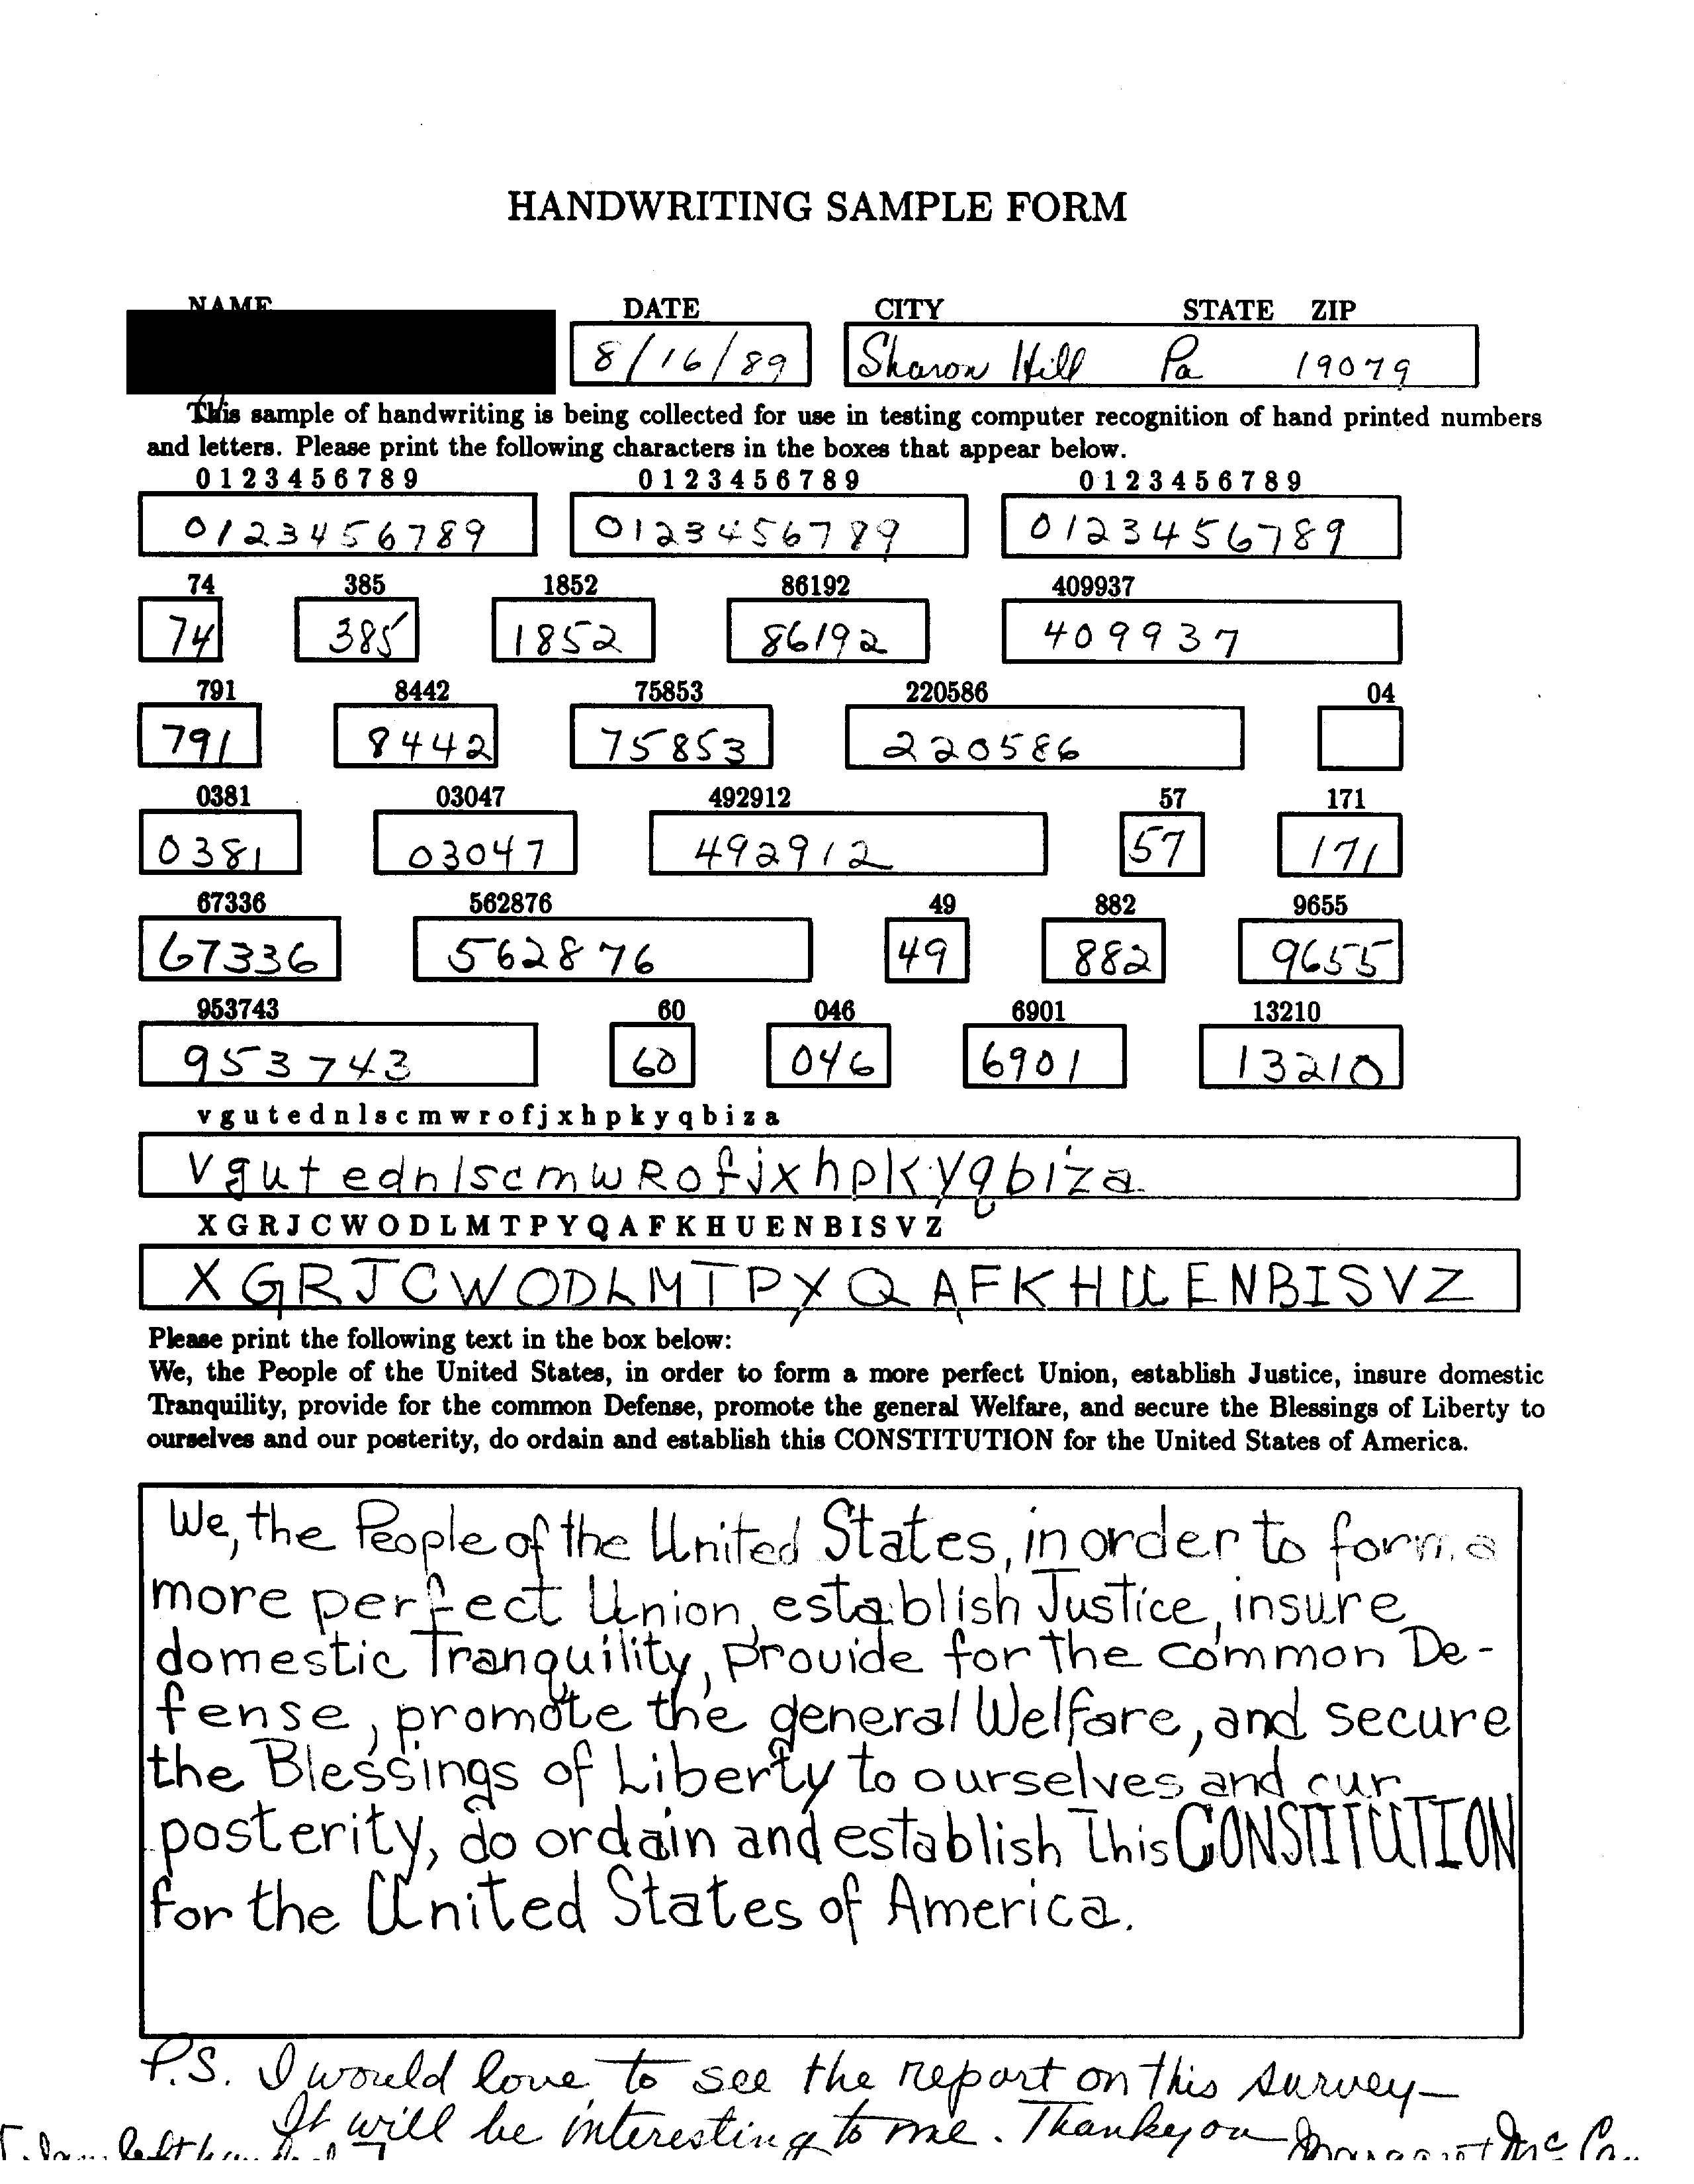 HANDWRITING SAMPLE FORM
NAME DATE CITY STATE ZIP
8/16/89 Sharon Hill Pa 19079
This sample of handwriting is being collected for use in testing computer recognition of hand printed numbers
and letters. Please print the following characters in the boxes that appear below.
0 1 2 3 4 5 6 7 8 9 0 1 2 3 4 5 6 7 8 9 0 1 2 3 4 5 6 7 8 9
0123456789 0123456789 0123456789
74 385 1852 86192 409937
74 385 1852 86192 409937
791 8442 75853 220586 04
791 8442 75853 220586
0381 03047 492912 57 171
0381 03047 492912 57 171
67336 562876 49 882 9655
67336 562876 49 882 9655
953743 60 046 6901 13210
953743 60 046 6901 13210
v g u t e d n l s c m w r o f j x h p k y q b i z a
v g u t e d n l s c m w R o f j x h p k y q b i z a
X G R J C W O D L M T P Y Q A F K H U E N B I S V Z
X G R J C W O D L M T P Y Q A F K H U E N B I S V Z
Please print the following text in the box below:
We, the People of the United States, in order to form a more perfect Union, establish Justice, insure domestic
Tranquility, provide for the common Defense, promote the general Welfare, and secure the Blessings of Liberty to
ourselves and our posterity, do ordain and establish this CONSTITUTION for the United States of America.
We, the People of the United States, in order to form a
more perfect Union, establish Justice, insure
domestic Tranquility, provide for the common De-
fense, promote the general Welfare, and secure
the Blessings of Liberty to ourselves and our
posterity, do ordain and establish this CONSTITUTION
for the United States of America.
P.S. I would love to see the report on this survey-
It will be interesting to me. Thank you
Margaret Mc